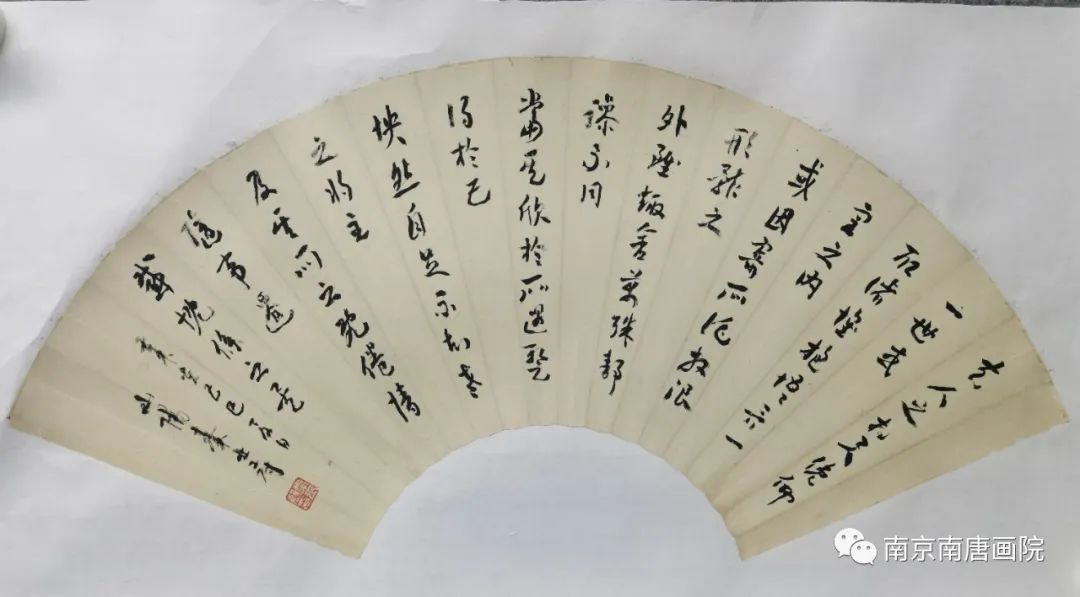 夫人之相與俯仰
一世或
取諸懷抱悟言一
室之內
或因寄所託放浪
形骸之
外雖趣舍萬殊靜
躁不同
當其欣於所遇暫
得於己
快然自足不知老
之將至
及其所之既倦情
隨事遷
感慨係之矣
乙巳
南京南唐画院